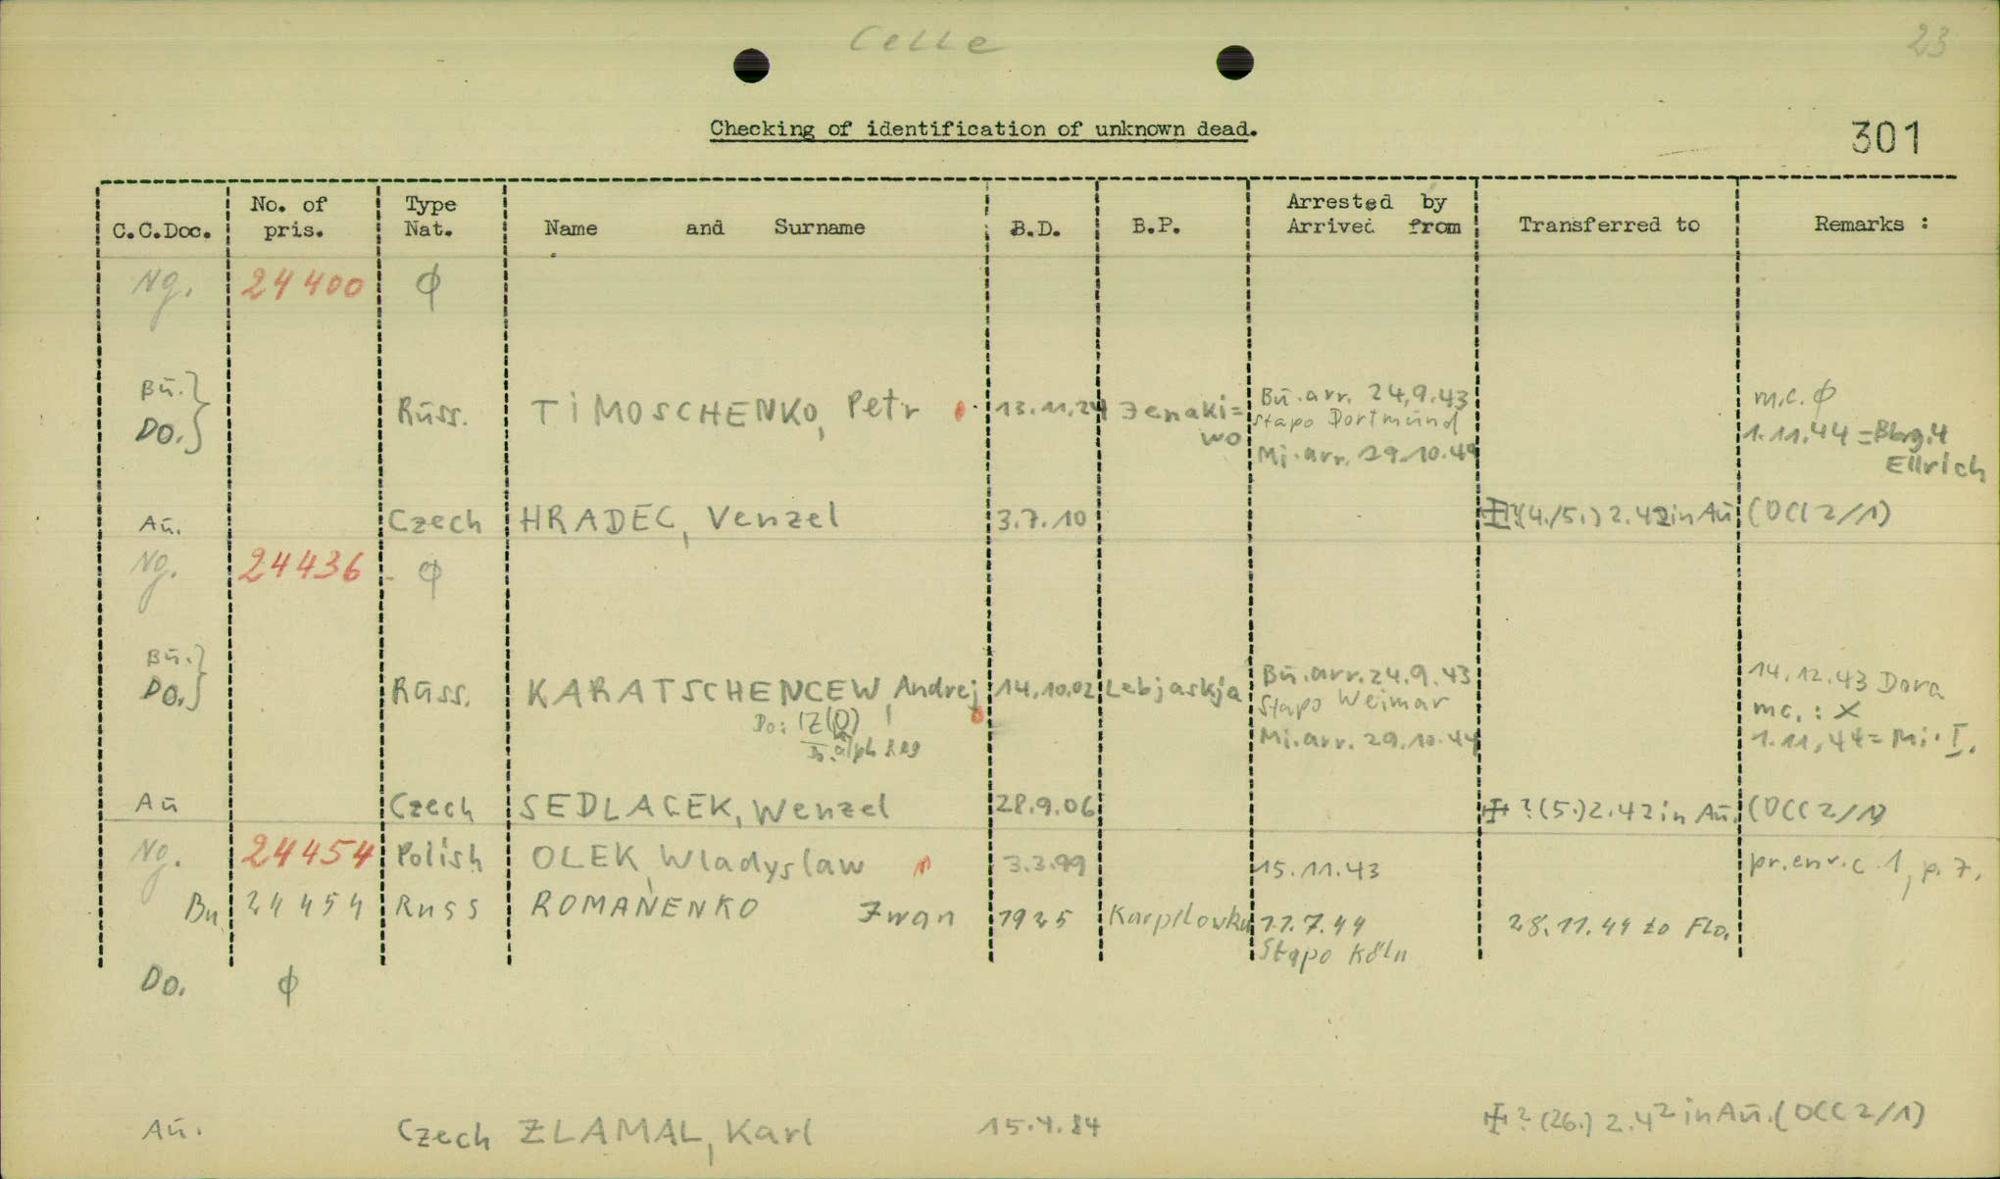 Celle
23
Checking of identification of unknown dead.
301
C.C.Doc. No. of pris. Type Nat. Name and Surname B.D. B.P. Arrested by Arrived from Transferred to Remarks :
Ng. 24400 ϕ
Bū. Do. } Rūss. TIMOSCHENKO, Petr 13.11.24 Jenaki=wo Bū. arr. 24.9.43 m.c. ϕ
Stapo Dortmūnd 1.11.44 = Blbg. 4
Mi. arr. 29.10.44 Ellrich
Aū. Czech HRADEC, Venzel 3.7.10 (4./5.) 2.42 in Aū (OCC 2/1)
Ng. 24436 ϕ
Bū. Do. } Rūss. KARATSCHENCEW, Andrej 14.10.02 Lebjaskja Bū. arr. 24.9.43 14.12.43 Dora
Do: Stapo Weimar mc.: X
alph Reg Mi. arr. 29.10.44 1.11.44 = Mi. I.
Aū Czech SEDLACEK, Wenzel 28.9.06 ? (5.) 2.42 in Aū. (OCC 2/1)
Ng. 24454 Polish OLEK, Wladyslaw 3.3.99 15.11.43 pr. env. c. 1, p. 7.
Bu 24454 Russ ROMANENKO Iwan 1925 Karpilowka 11.7.44 28.11.44 to Flo.
Stapo Köln
Do. ϕ
Aū. Czech ZLAMAL, Karl 15.4.84 ? (26.) 2.42 in Aū. (OCC 2/1)